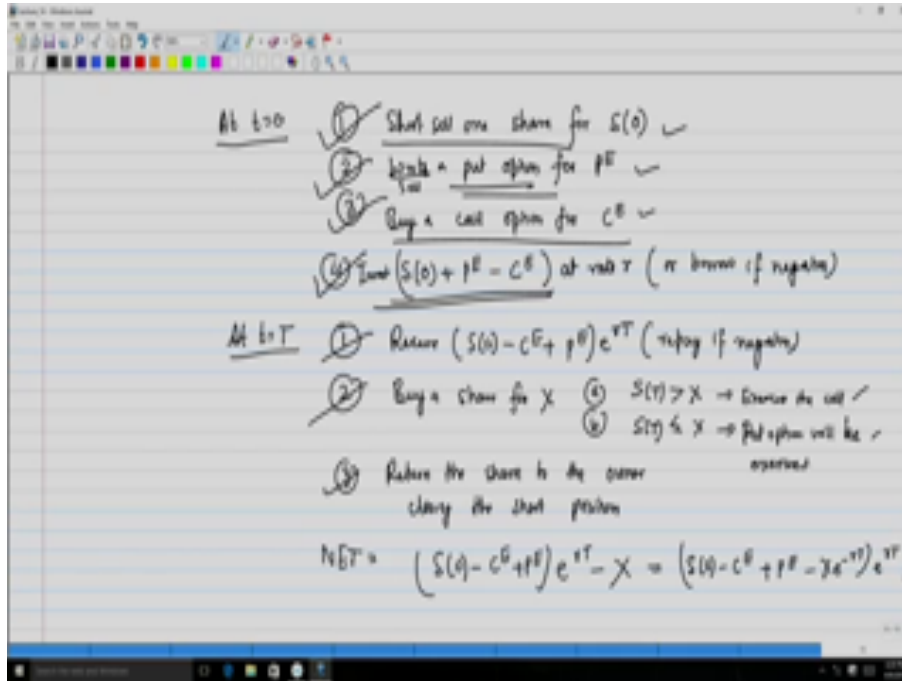 At t=0 ① Short sell one share for S(0)
② Write a put option for P^E
③ Buy a call option for C^E
④ Invest (S(0) + P^E - C^E) at rate r (or borrow if negative)
At t=T ① Receive (S(0) - C^E + P^E) e^{rT} (repay if negative)
② Buy a share for X ⓐ S(T) > X → Exercise the call
ⓑ S(T) ≤ X → Put option will be
exercised
③ Return the share to the owner
closing the short position
NET = (S(0) - C^E + P^E) e^{rT} - X = (S(0) - C^E + P^E - Xe^{-rT}) e^{rT}